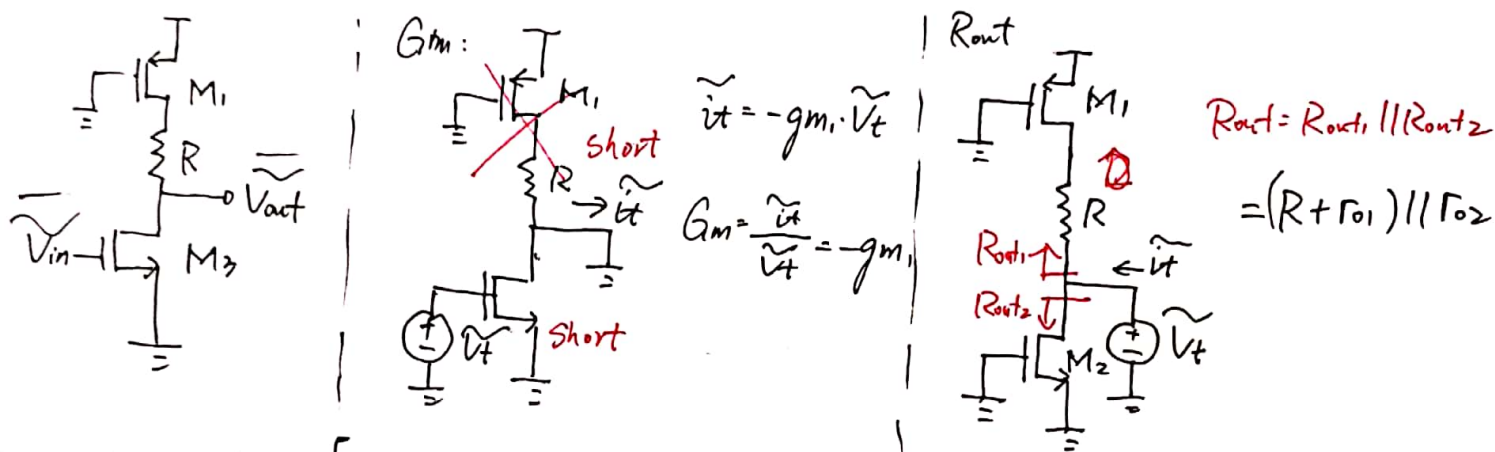 M₁
R
Ṽout
Ṽin
M₃
Gm:
M₁
short
R
→ ĩt
+
-
Ṽt
Short
ĩt = -gm₁·Ṽt
Gm = ĩt/Ṽt = -gm₁
Rout
M₁
R
Rout₁
← ĩt
Rout₂
M₂
+
-
Ṽt
Rout = Rout₁ // Rout₂
= (R + ro₁) // ro₂